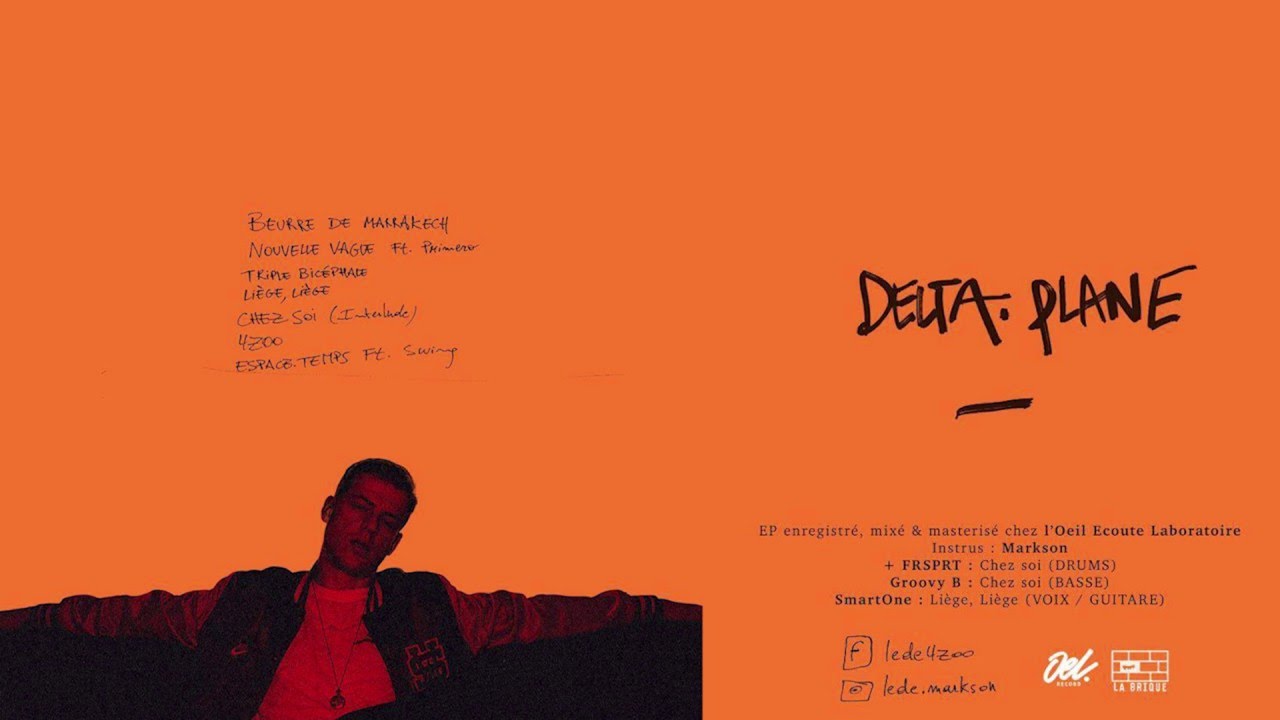 BEURRE DE MARRAKECH
NOUVELLE VAGUE Ft. Primero
TRIPLE BICÉPHALE
LIÈGE, LIÈGE
CHEZ SOI (Interlude)
4Z00
ESPACE.TEMPS Ft. Swing
DELTA. PLANE
EP enregistré, mixé & masterisé chez l'Oeil Ecoute Laboratoire
Instrus : Markson
+ FRSPRT : Chez soi (DRUMS)
Groovy B : Chez soi (BASSE)
SmartOne : Liège, Liège (VOIX / GUITARE)
f lede4z00
lede.markson
Oel.
RECORD
LA BRIQUE